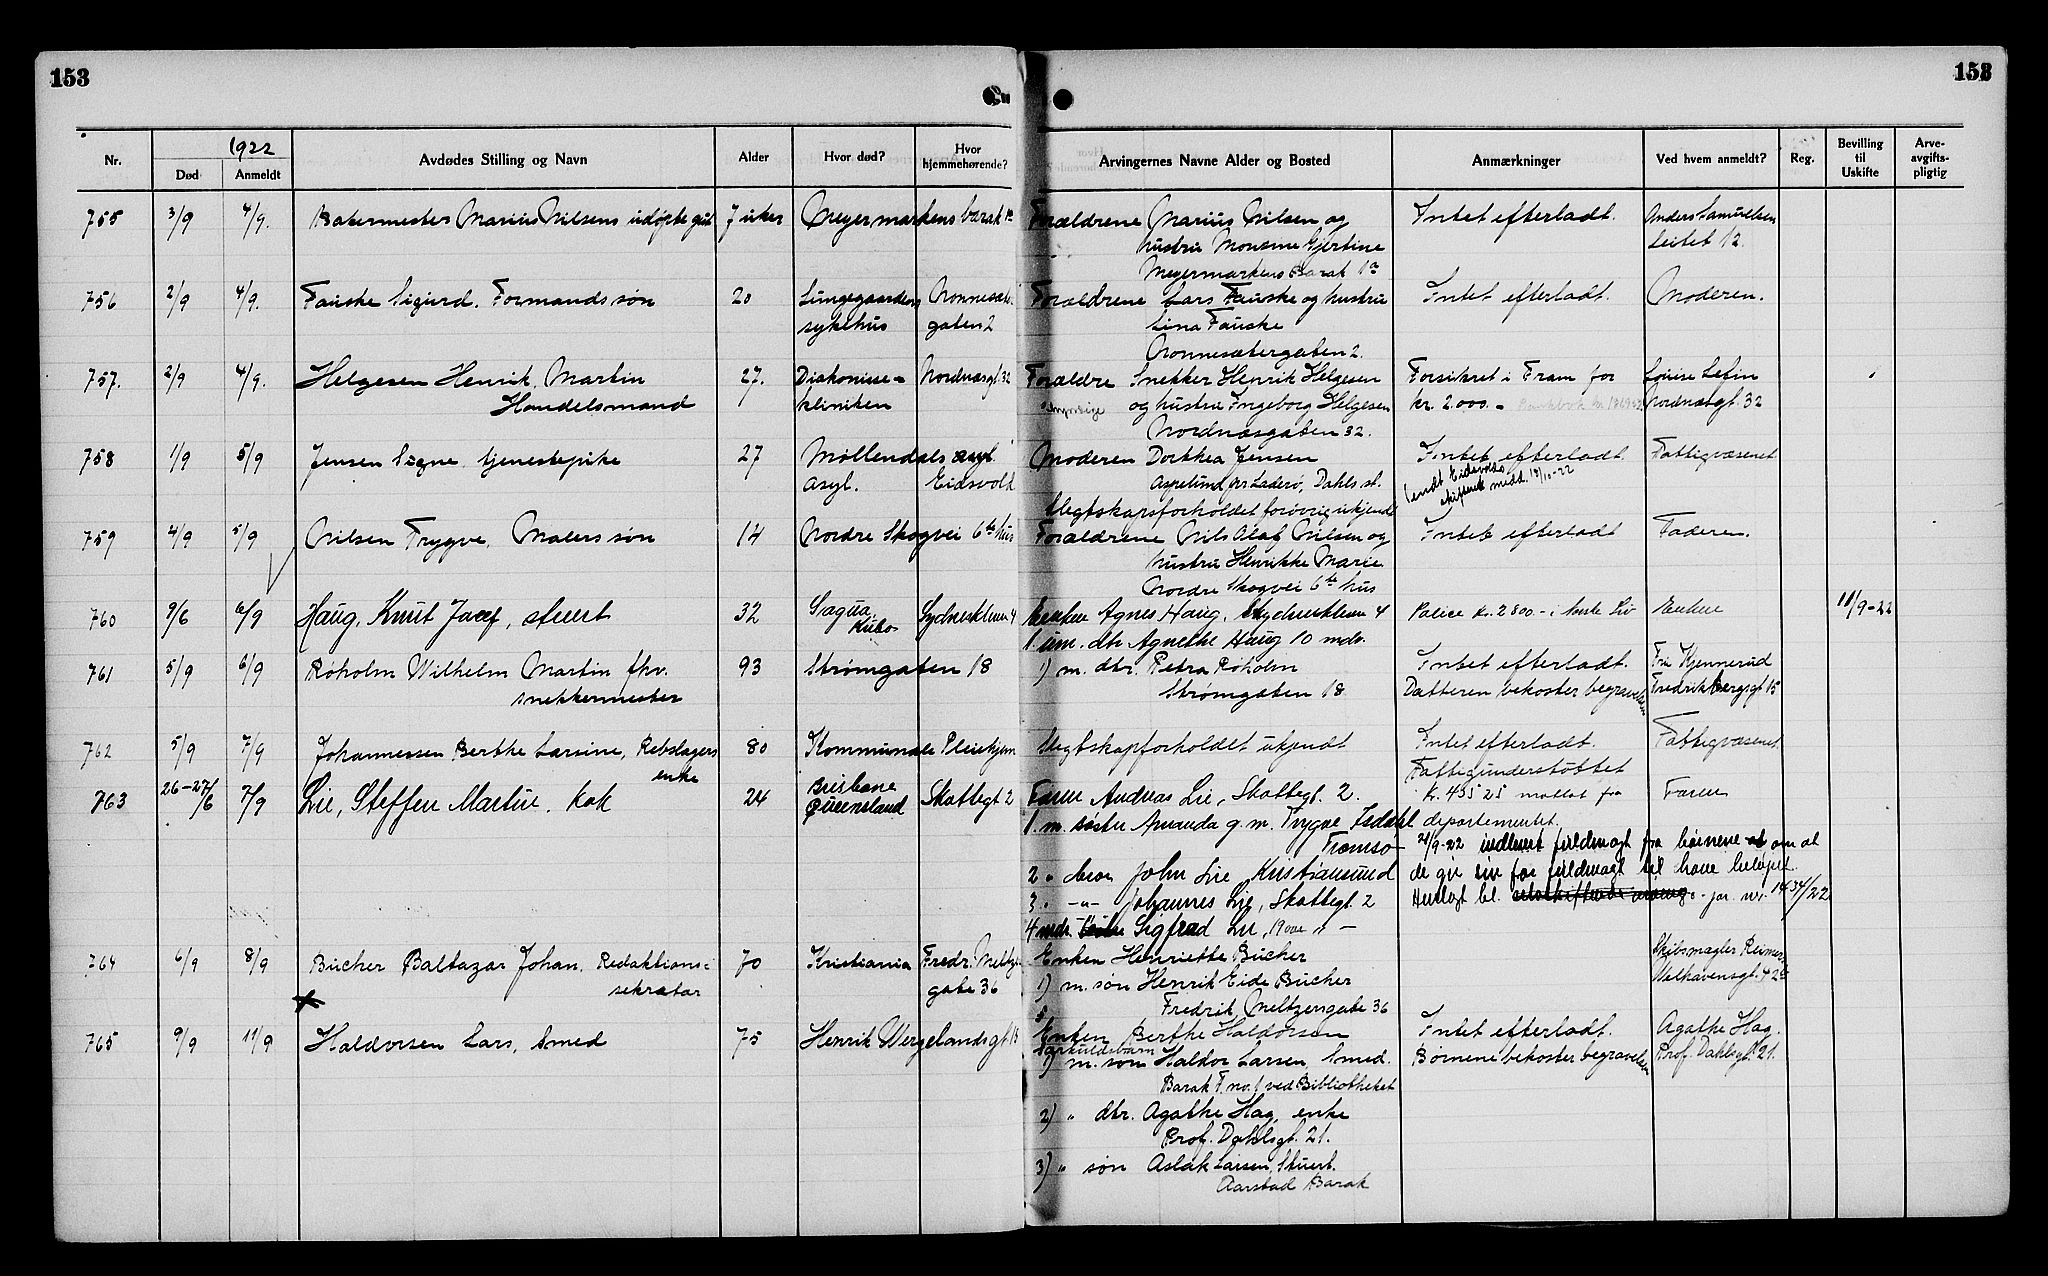 153
153
1922
Nr.
Død
Anmeldt
Avdødes Stilling og Navn
Alder
Hvor død?
Hvor hjemmehørende?
Arvingernes Navne Alder og Bosted
Anmærkninger
Ved hvem anmeldt?
Reg.
Bevilling til Uskifte
Arveavgiftspligtig
755 3/9 4/9. Marius Nilsens udøpte gut 7 uker Meyermarkens barak 1a Forældrene Marius Nilsen og Intet efterladt. Anders Samuelsen
hustru Monsine Gjertine Leitet 12.
Meyermarkens Barak 1a
756 2/9 4/9. Fauske Sigurd. Formands søn 20 Lungegaardens Forældrene Lars Fauske og hustru Intet efterladt. Moderen.
sykehus gaten 2 Lina Fauske
Ronnesætergaten 2.
757. 2/9 4/9. Helgesen Henrik. Martin 27. Diakonisse- Nordnæsgt. 32 Forældre Snekker Henrik Helgesen Forsikret i Fram for Louise
Handelsmand kliniken og hustru Ingeborg Helgesen kr. 2.000.- Nordnæsgt. 32
Nordnæsgaten 32.
758 1/9 5/9 Jensen Signe, tjenestepike 27 Møllendals asyl Moderen Dorthea Jensen Intet efterladt. Fattigvæsenet
asyl. Eidsvold Aspelund Dahls st. (sendt Eidsvolds
Slegtskapsforholdet forøvrig ukjendt skifterett medd. 13/10-22
759 4/9 5/9 Nilsen Trygve, Malers søn 14 Nordre Skogvei 6te hus Forældrene Nils Olaf Nilsen og Intet efterladt Faderen.
hustru Henrikke Marie
Nordre Skogvei 6te hus
760 9/6 6/9 Haug, Knut Josef, stuert 32 Sagua Sydneskleven 4 Enken Agnes Haug. Sydneskleven 4 Police kr. 2800.- i Enken 11/9-22
Kuba 1 um. dtr Agnethe Haug 10 mdr.
761 5/9 6/9 Røholm Wilhelm Martin fhv. 93 Strømgaten 18 1) m. dtr. Petra Røholm Intet efterladt. Fru Kjennerud
snekkermester Strømgaten 18 Datteren bekoster begravelsen Fredriksbergsgt 15
762 5/9 7/9 Johannessen Berthe Larsine, Rebslagers 80 Kommunale Pleiehjem Slegtskapforholdet ukjendt Intet efterladt. Fattigvæsenet
enke Fattigunderstøttet
763 26-27/6 7/9 Lie, Steffen Martin. kok 24 Brisbane Skottegt 2 Faren Andreas Lie, Skottegt. 2. Kr. 435 25 mottat fra Faren
Queensland
1. m. søster Amanda g. m. Trygve Isdahl departementet.
Tromsø 21/9-22 indlevert fuldmagt fra børnene om at
2 " bror John Lie Kristiansund de gir sin far fuldmagt til hæve beløpet
3. " -"- Johannes Lie, Skottegt. 2 Henlagt bl. jnr. nr. 1434/22
4 mdr. Sigfrad Lie, 19 aar " -
764 6/9 8/9 Bucher Baltazar Johan, Redaktions- 70 Kristiania Fredr. Meltzer Enken Henriette Bucher Skibsmægler Reimers
sekretær gate 36 1) m. søn Henrik Eide Bucher Welhavensgt. 42
Fredrik Meltzersgate 36
765 9/9 11/9 Haldorsen Lars, Smed 75 Henrik Wergelandsgt 15 Enken Berthe Haldorsen Intet efterladt. Agathe Hag,
Særkuldsbarn
1) m. søn Haldor Larsen, Smed. Børnene bekoster begravelsen Prof. Dahlsgt. 21.
Barak F no. 1 ved Bibliotheket
2) " dtr. Agathe Hag, enke
Prof. Dahlsgt. 21.
3) " søn Aslak Larsen, Stuert.
Aarstad Barak